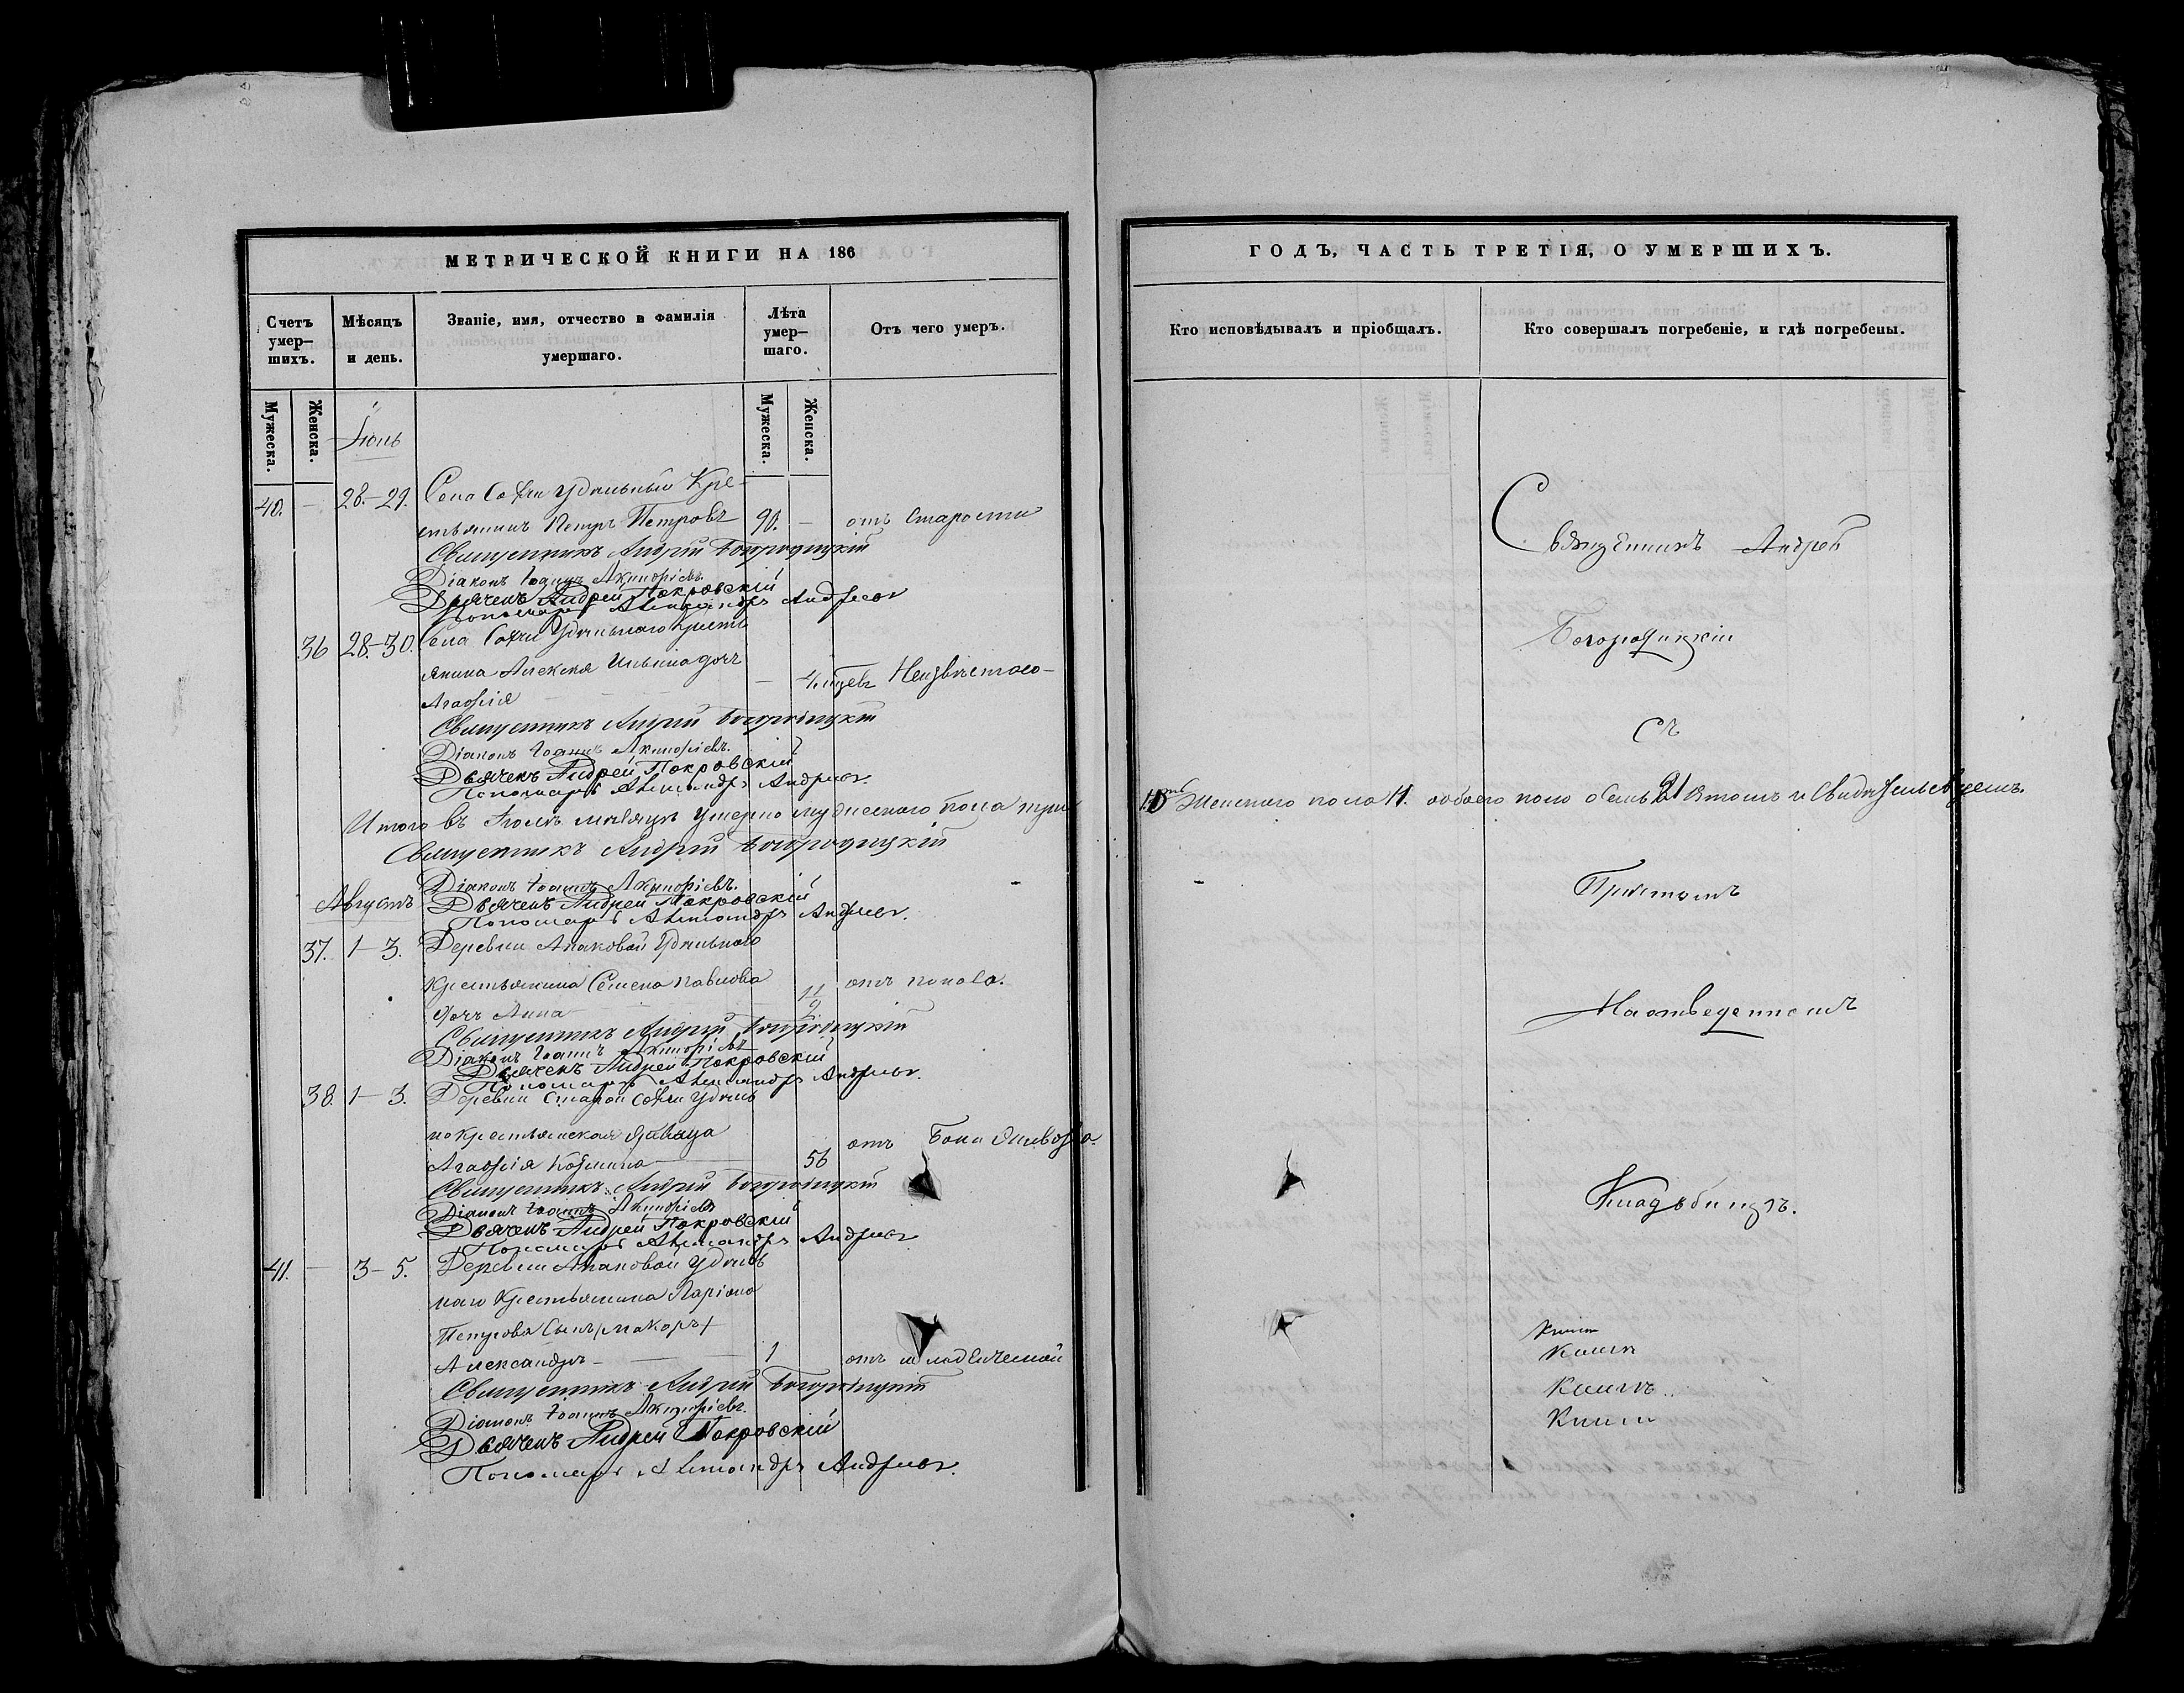 МЕТРИЧЕСКОЙ КНИГИ НА 186
Счетъ умер–шихъ.
Мѣсяцъ и день.
Званіе, имя, отчество и фамилія умершаго.
Лѣта умер–шаго.
Отъ чего умеръ.
Мужеска.
Женска.
Мужеска.
Женска.
Іюль
40. — 28.–29. Села Сохчи Удѣльный Кре-
стьянинъ Петръ Петровъ 90. — отъ Старости
Священникъ Андрей Богородицкій
Діаконъ Іоаннъ
Дьячекъ Андрей Покровскій
Пономарь Александръ Андреевъ
36 28.–30. Села Удѣльнаго Кресть
янина Алексея Ильина дочь — Неизвѣстно–
Агафія
Священникъ Андрей Богородицкій
Діаконъ Іоаннъ
Дьячекъ Андрей Покровскій
Пономарь Александръ Андреевъ.
Итого въ Іюлѣ мѣсяцѣ Умерло мужескаго пола
Священникъ Андрей Богородицкій
Діаконъ Іоаннъ
Августъ Дьячекъ Андрей Покровскій
Пономарь Александръ Андреевъ.
37. 1–3. Деревни Апаковой Удѣльнаго
Крестьянина Семена Павлова отъ поноса.
дочь Анна
Священникъ Андрей Богородицкій
Діаконъ Іоаннъ
Дьячекъ Андрей Покровскій
Пономарь Александръ Андреевъ.
38. 1–3. Деревни Старой Удѣль
но Крестьянская Вдовица
Агафія Козмина 56 отъ
Священникъ Андрей Богородицкій
Діаконъ Іоаннъ
Дьячекъ Андрей Покровскій
Пономарь Александръ Андреевъ
41. — 3–5. Деревни Апаковой Удѣль
наго Крестьянина Ларіона
Петрова Сынъ
Александръ 1 отъ младенческой
Священникъ Андрей Богородицкій
Діаконъ Іоаннъ
Дьячекъ Андрей Покровскій
Пономарь Александръ Андреевъ.
ГОДЪ, ЧАСТЬ ТРЕТІЯ, О УМЕРШИХЪ.
Кто исповѣдывалъ и пріобщалъ.
Кто совершалъ погребеніе, и гдѣ погребены.
Священникъ Андрей
Богородицкій
Съ
Женскаго пола 11. обоего пола 21 въ томъ и Свидѣтельствуемъ.
Причтомъ
На отведенномъ
Кладъбищѣ.